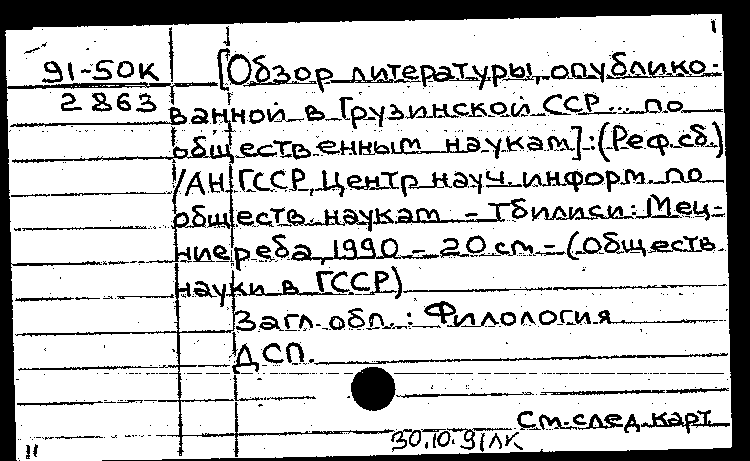 1
91-50К [Обзор литературы, опублико-
2863 ванной в Грузинской ССР... по
обществ.енным наукам]:(Реф.сб.)
/АН ГССР, Центр науч. информ. по
обществ. наукам. – Тбилиси: Мец-
ниереба, 1990 – 20 см – (Обществ.
науки в ГССР)
Загл. обл.: Филология
ДСП.
См. след. карт.
30.10.91ЛК
11